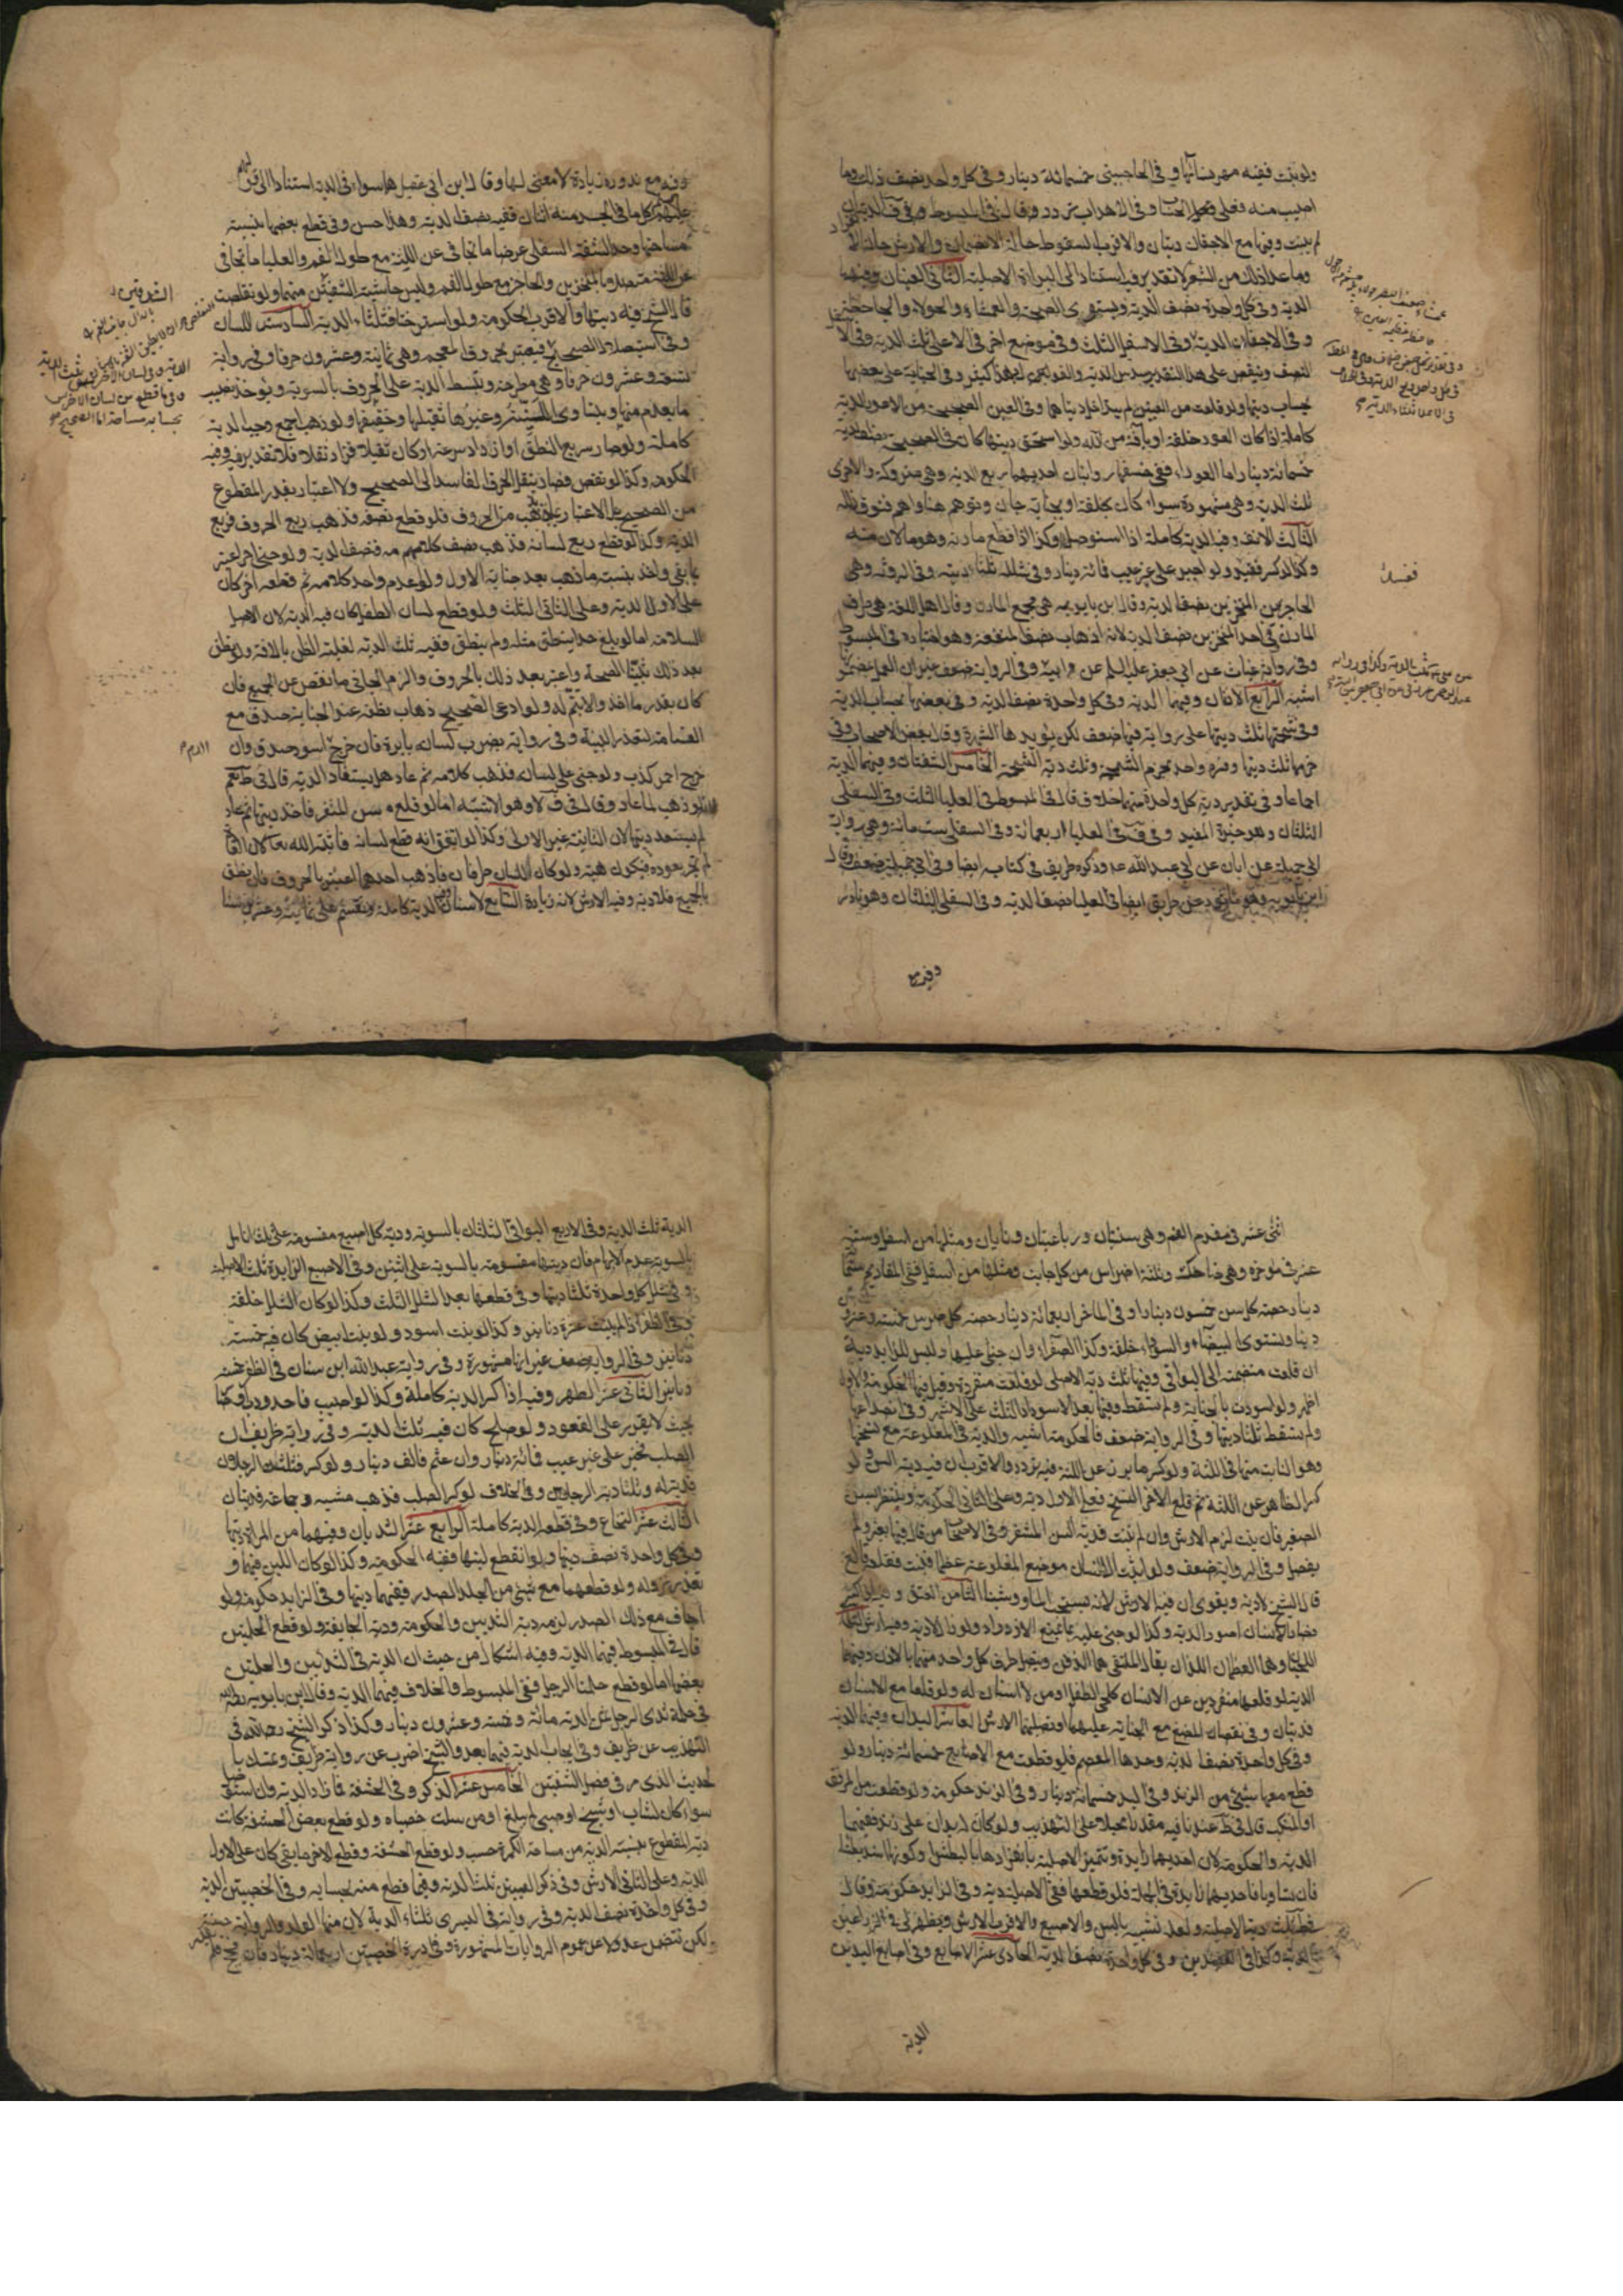 ولو نبتت ففيه مهر نسائها وفي الحاجبين خمسمائة دينار وفي كل واحد نصف ذلك وما
اصيب منه فعلى الحساب وفي الاهداب تردد وقال في المبسوط وفي الديتان
لم ينبت وفيها مع الاجفان ديتان والاقرب السقوط حالة الانضمام والارش حالة
وما عدا ذلك من الشعر لا تقدير فيه استنادا الى البراءة الاصلية الثاني العينان وفيهما
الدية وفي كل واحدة نصف الدية ويستوي الصحيحة والعمشاء والحولاء والجاحظة
وفي الاجفان الدية وفي الاسفل الثلث وفي موضع اخر في الاعلى ثلث الدية وفي الا
النصف وينقص على هذا التقدير سدس الدية والقول بهذا كثير وفي الجناية على بعضها
بحساب ديتها ولو قلعت مع العينين لم يتداخل ديتاهما وفي العين الصحيحة من الاعور الدية
كاملة اذا كان العور خلقة او بآفة من الله ولو استحق ديتها كان في الصحيحة نصف الدية
خمسمائة دينار اما العوراء ففي خسفها روايتان احديهما ربع الدية وهي متروكة والاخرى
ثلث الدية وهي مشهورة سواء كان بخلقة او بجناية جان ووهم هنا واهم فتوق زلله
الثالث الانف وفيه الدية كاملة اذا استوصل وكذا اذا قطع مارنه وهو ما لان منه
وكذا لو كسر ففسد ولو اجبر على غير عيب فمائة دينار وفي شلله ثلثا ديته وفي الروثة وهي
الحاجز بين المنخرين نصف الدية وقال ابن بابويه هي مجمع المارن وقال اهل اللغة هي طرف
المارن وفي احد المنخرين نصف الدية لانه اذهاب نصف المنفعة وهو اختياره في المبسوط
وفي رواية غياث عن ابي جعفر عليه السلام عن وفي الرواية ضعف غير ان العمل بمضمونها
اشبه الرابع الاذنان وفيهما الدية وفي كل واحدة نصف الدية وفي بعضها بحساب الدية
وفي شحمتها ثلث ديتها على رواية فيها ضعف لكن يؤيدها الشهرة وقال بعض الاصحاب وفي
خرمها ثلث ديتها وفسره واحد بخرم الشحمة وثلث دية الشحمة الخامس الشفتان وفيهما الدية
اجماعا وفي تقدير دية كل واحدة منهما خلاف قال في المبسوط في العليا الثلث وفي السفلى
الثلثان وهو خيرة المفيد وفي ف في العليا اربعمائة وفي السفلى ستمائة وهي رواية
ابي جميلة عن ابان عن ابي عبد الله ع وذكره ظريف في كتابه ايضا وفي ابي جميلة ضعف وقال
ابن بابويه وهو ماثور عن ظريف ايضا في العليا نصف الدية وفي السفلى الثلثان وهو نادر
وفيه مع
وفيه مع ندوره زيادة لا معنى لها وقال ابن ابي عقيل هما سواء في الدية استنادا الى قولهم
عليهم كل ما في الجسد منه اثنان ففيه نصف الدية وهذا حسن وفي قطع بعضها بنسبة
مساحتها وحد الشفة السفلى عرضا ما تجافى عن اللثة مع طول الفم والعليا ما تجافى
عن اللثة متصلا بالمنخرين والحاجز مع طول الفم وليس حاشية الشفتين منهما ولو تقلصت
قال الشيخ فيه ديتها والاقرب الحكومة ولو استرختا فثلثا الدية السادس اللسان
وفي استيصال الصحيح ويعتبر بحروف المعجم وهي ثمانية وعشرون حرفا وفي رواية
تسعة وعشرون حرفا وهي مطرحة وتبسط الدية على الحروف بالسوية ويؤخذ نصيب
ما يعدم منها ويتساوى اللسنية وغيرها ثقيلها وخفيفها ولو ذهب اجمع وجب الدية
كاملة ولو صار سريع النطق او ازداد سرعة او كان ثقيلا فزاد ثقلا فلا تقدير فيه وفيه
الحكومة وكذا لو نقص فصار ينقل الحرف الفاسد الى الصحيح ولا اعتبار بقدر المقطوع
من الصحيح بل الاعتبار بما يذهب من الحروف فلو قطع نصفه فذهب ربع الحروف فربع
الدية وكذا لو قطع ربع لسانه فذهب نصف كلامه فنصف الدية ولو جنى اخر اعتبر
بما بقي واخذ بنسبة ما ذهب بعد جناية الاول ولو اعدم واحد كلامه ثم قطعه اخر كان
على الاول الدية وعلى الثاني الثلث ولو قطع لسان الطفل كان فيه الدية لان الاصل
السلامة اما لو بلغ حدا ينطق مثله ولم ينطق ففيه ثلث الدية لغلبة الظن بالآفة ولو نطق
بعد ذلك تبينا الصحة واعتبر بعد ذلك بالحروف والزم الجاني ما نقص عن الجميع فان
كان بقدر ما اخذ والا تمم له ولو ادعى الصحيح ذهاب نطقه عند الجناية صدق مع
القسامة لتعذر البينة وفي رواية يضرب لسانه بابرة فان خرج اسود صدق وان
خرج احمر كذب ولو جنى على لسانه فذهب كلامه ثم عاد هل يستعاد الدية قال في ط نعم
لانه لو ذهب لما عاد وقال في ف لا وهو الاشبه اما لو قلع سن المثغر فاخذ ديتها ثم عاد
لم يستعد ديتها لان الثانية غير الاولى وكذا لو اتفق انه قطع لسانه فانبته الله تعالى لان العادة
لم تجر بعوده فيكون هبة ولو كان للسان طرفان فاذهب احدهما اعتبر بالحروف فان نطق
بالجميع فلا دية وفيه الارش لانه زيادة السابع الاسنان وفيها الدية كاملة وتقسم على ثمانية وعشرين سنا
اثنى عشر في مقدم الفم وهي سنتان ورباعيتان ونابان ومثلها من اسفل وستة
عشر في مؤخره وهي ضاحك وثلثة اضراس من كل جانب ومثلها من اسفل ففي المقاديم ستمائة
دينار حصة كل سن خمسون دينارا وفي المآخر اربعمائة دينار حصة كل ضرس خمسة وعشرون
دينارا ويستوى البيضاء والسوداء خلقة وكذا الصفراء وان جنى عليها وليس للزايد دية
ان قلعت منضمة الى البواقي وفيها ثلث دية الاصلي لو قلعت منفردة وقيل فيها الحكومة والاول
اظهر ولو اسودت بالجناية ولم تسقط وفيها بعد الاسوداد الثلث على الاشهر وفي انصداعها
ولم يسقط ثلثا ديتها وفي الرواية ضعف فالحكومة اشبه والدية في المقلوعة مع سنخها
وهو الثابت منها في اللثة ولو كسر ما برز عن اللثة فيه تردد والاقرب ان فيه دية السن ولو
كسر الظاهر عن اللثة ثم قلع الاخر السنخ فعلى الاول دية وعلى الثاني الحكومة وينتظر بسن
الصغير فان نبت لزم الارش وان لم تنبت فدية السن المثغر وفي الاصحاب من قال فيها بعير ولم
يفصل وفي الرواية ضعف ولو انبت الانسان موضع المقلوعة عظما فنبت فقلعه قالع
قال الشيخ لا دية ويقوى ان فيه الارش لانه يستصحب الما وشينا الثامن العنق وفيه اذا كسر
فصار الانسان اصور الدية وكذا لو جنى عليه بما يمنع الازدراد ولو زال فلا دية وفيه الارش التاسع
اللحيان وهما العظمان اللذان يقال لملتقاهما الذقن ويتصل طرف كل واحد منهما بالاذن وفيهما
الدية لو قلعا منفردين عن الاسنان كلحي الطفل او من لا اسنان له ولو قلعا مع الاسنان
فديتان وفي نقصان المضغ مع الجناية عليهما او تصلبهما الارش العاشر اليدان وفيهما الدية
وفي كل واحدة نصف الدية وحدها المعصم فلو قطعت مع الاصابع خمسمائة دينار ولو
قطع معها شيء من الزند وفي اليد خمسمائة دينار وفي الزند حكومة ولو قطعت من المرفق
او المنكب قال في ط عندنا فيه مقدر محيلا على التهذيب ولو كان له يدان على زند ففيهما
الدية والحكومة لان احديهما زايدة وتتميز الاصلية بانفرادها بالبطش او كونها اشد بطشا
فان تساويا فاحديهما زايدة في الجملة فلو قطعهما ففي الاصلية دية وفي الزايد حكومة وقال
في ط ثلث دية الاصلية ولعله تشبيه بالسن والاصبع والاقرب الارش ويظهر لي في الذراعين
الدية وكذا في العضدين وفي كل واحدة نصف الدية الحادي عشر الاصابع وفي اصابع اليدين
الدية
الدية ثلث الدية وفي الاربع البواقي الثلثان بالسوية ودية كل اصبع مقسومة على ثلث انامل
بالسوية عدا الابهام فان ديتها مقسومة بالسوية على اثنين وفي الاصبع الزايدة ثلث الاصلية
وفي شلل كل واحدة ثلثا ديتها وفي قطعها بعد الشلل الثلث وكذا لو كان الشلل خلقة
وفي الظفر اذا لم ينبت عشرة دنانير وكذا لو نبت اسود ولو نبت ابيض كان فيه خمسة
دنانير وفي الرواية ضعف غير انها مشهورة وفي رواية عبد الله ابن سنان في الظفر خمسة
دنانير الثاني عشر الظهر وفيه اذا كسر الدية كاملة وكذا لو اصيب فاحدودب او كان
بحيث لا يقدر على القعود ولو صلح كان فيه ثلث الدية وفي رواية ظريف ان
الصلب فجبر على غير عيب فمائة دينار وان عثم فالف دينار ولو كسر فشلت الرجلان
فدية له وثلثا دية الرجلين وفي الخلاف لو كسر الصلب فذهب مشيه وجماعه فديتان
الثالث عشر النخاع وفي قطعه الدية كاملة الرابع عشر الثديان وفيهما من المراة ديتها
وفي كل واحدة نصف ديتها ولو انقطع لبنهما ففيه الحكومة وكذا لو كان اللبن فيهما و
تعذر نزوله ولو قطعهما مع شيء من الجلد الصدر ففيهما ديتها وفي الزايد حكومة ولو
اجاف مع ذلك الصدر لزمه دية الثديين والحكومة ودية الجايفة ولو قطع الحلمتين
قال في المبسوط فيهما الدية وفيه اشكال من حيث ان الدية في الثديين والحلمتين
بعضها اما لو قطع حلمتا الرجل ففي المبسوط والخلاف فيهما الدية وقال ابن بابويه رحمه الله
في حلمة ثدي الرجل ثمن الدية مائة وخمسة وعشرون دينار وكذا ذكر الشيخ رحمه الله في
التهذيب عن ظريف وفي ايجاب الدية فيهما بعد والشيخ اضرب عن رواية ظريف وتمسك با
لحديث الذي مر في فصل الشفتين الخامس عشر الذكر وفي الحشفة فما زاد الدية وان استوصل
سواء كان لشاب او شيخ او صبي لم يبلغ او من سلت خصياه ولو قطع بعض الحشفة كانت
دية المقطوع بنسبة الدية من مساحة الكمرة حسب ولو قطع الحشفة وقطع الاخر ما بقي كان على الاول
الدية وعلى الثاني الارش وفي ذكر العنين ثلث الدية وفيما قطع منه بحسابه وفي الخصيتين الدية
وفي كل واحدة نصف الدية وفي رواية في اليسرى ثلثا الدية لان منها الولد والرواية حسنة
لكن تتضمن عدولا عن عموم الروايات المشهورة وفي ادرة الخصيتين اربعمائة دينار فان فحج فلم